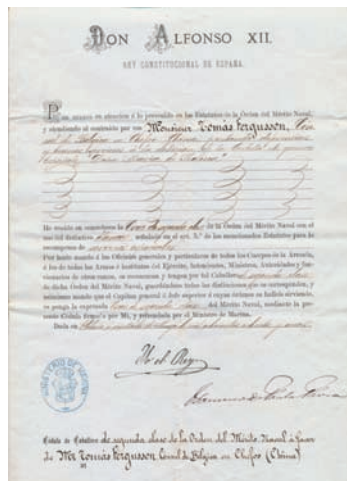 DON ALFONSO XII.
REY CONSTITUCIONAL DE ESPAÑA.
Por cuanto en atencion á lo prevenido en los Estatutos de la Orden del Mérito Naval,
y atendiendo al contraído por vos Monsieur Tomás Fergusson, Con-
sul de Bélgica en Chefoo China
He venido en concederos la Cruz de segunda clase de la Orden del Mérito Naval con el
uso del distintivo señalado en el art. 3.º de los mencionados Estatutos para la
recompensa de servicios especiales
Por tanto mando á los Oficiales generales y particulares de todos los Cuerpos de la Armada,
á los de todas las Armas é institutos del Ejército, Intendentes, Ministros, Autoridades y fun-
cionarios de otros ramos, os reconozcan y tengan por tal Caballero de segunda clase
de dicha Orden del Mérito Naval, guardándoos todas las distinciones que os correspondan, y
asimismo mando que el Capitan general ó Jefe superior á cuyas órdenes os halleis sirviendo,
os ponga la expresada Cruz de segunda clase del Mérito Naval, mediante la pre-
sente Cédula firmada por Mí, y refrendada por el Ministro de Marina.
Dada en
Yo el Rey
MINISTERIO DE MARINA
Cédula de Caballero de segunda clase de la Orden del Mérito Naval á favor
de Mr Tomás Fergusson, Consul de Bélgica en Chefoo (China)